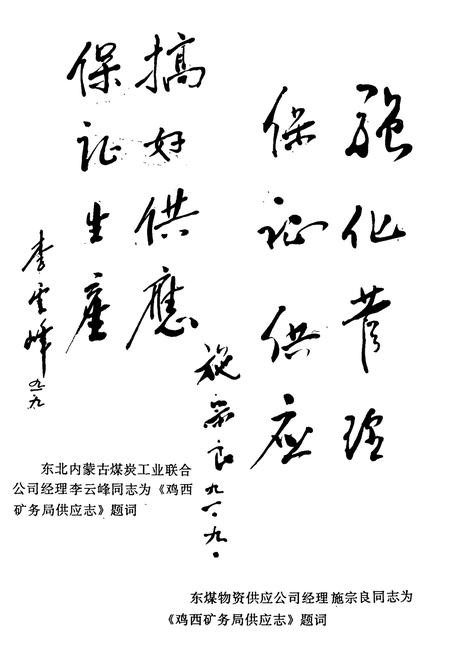 强化管理
保证供应
施宗良
搞好供應
保证生產
李雲峰
东北内蒙古煤炭工业联合
公司经理李云峰同志为《鸡西
矿务局供应志》题词
东煤物资供应公司经理施宗良同志为
《鸡西矿务局供应志》题词